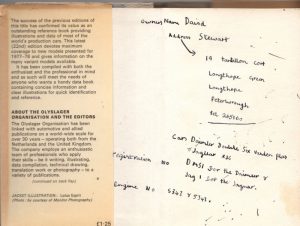 The success of the previous editions of
this title has confirmed its value as an
outstanding reference book providing
illustrations and data of most of the
world's production cars. This latest
(22nd) edition devotes maximum
coverage to new models presented for
1977-78 and gives information on the
many variant models available.
It has been compiled with both the
enthusiast and the professional in mind
and as such will meet the needs of
anyone who wants a handy data book
containing concise information and
clear illustrations for quick identification
and reference.
ABOUT THE OLYSLAGER
ORGANISATION AND THE EDITORS
The Olyslager Organisation has been
linked with automotive and allied
publications on a world-wide scale for
over 30 years – operating both from the
Netherlands and the United Kingdom.
The company employs an enthusiastic
team of professionals who apply
their skills – be it writing, illustrating,
data compilation, technical drawing,
translation work or photography – to a
variety of publications.
(continued on back flap)
JACKET ILLUSTRATION: Lotus Esprit
(Photo: by courtesy of Monitor Photography)
£1·25
Owners Name David
Address Stewart
19 Court
Longthorpe Green
Longthorpe
Peterborough
Tel
Cars Daimler Double Six Vanden plas
+ Jaguar
Registration No DAS1 for the Daimler &
for the Jaguar.
Engine No 5343 & 5343.